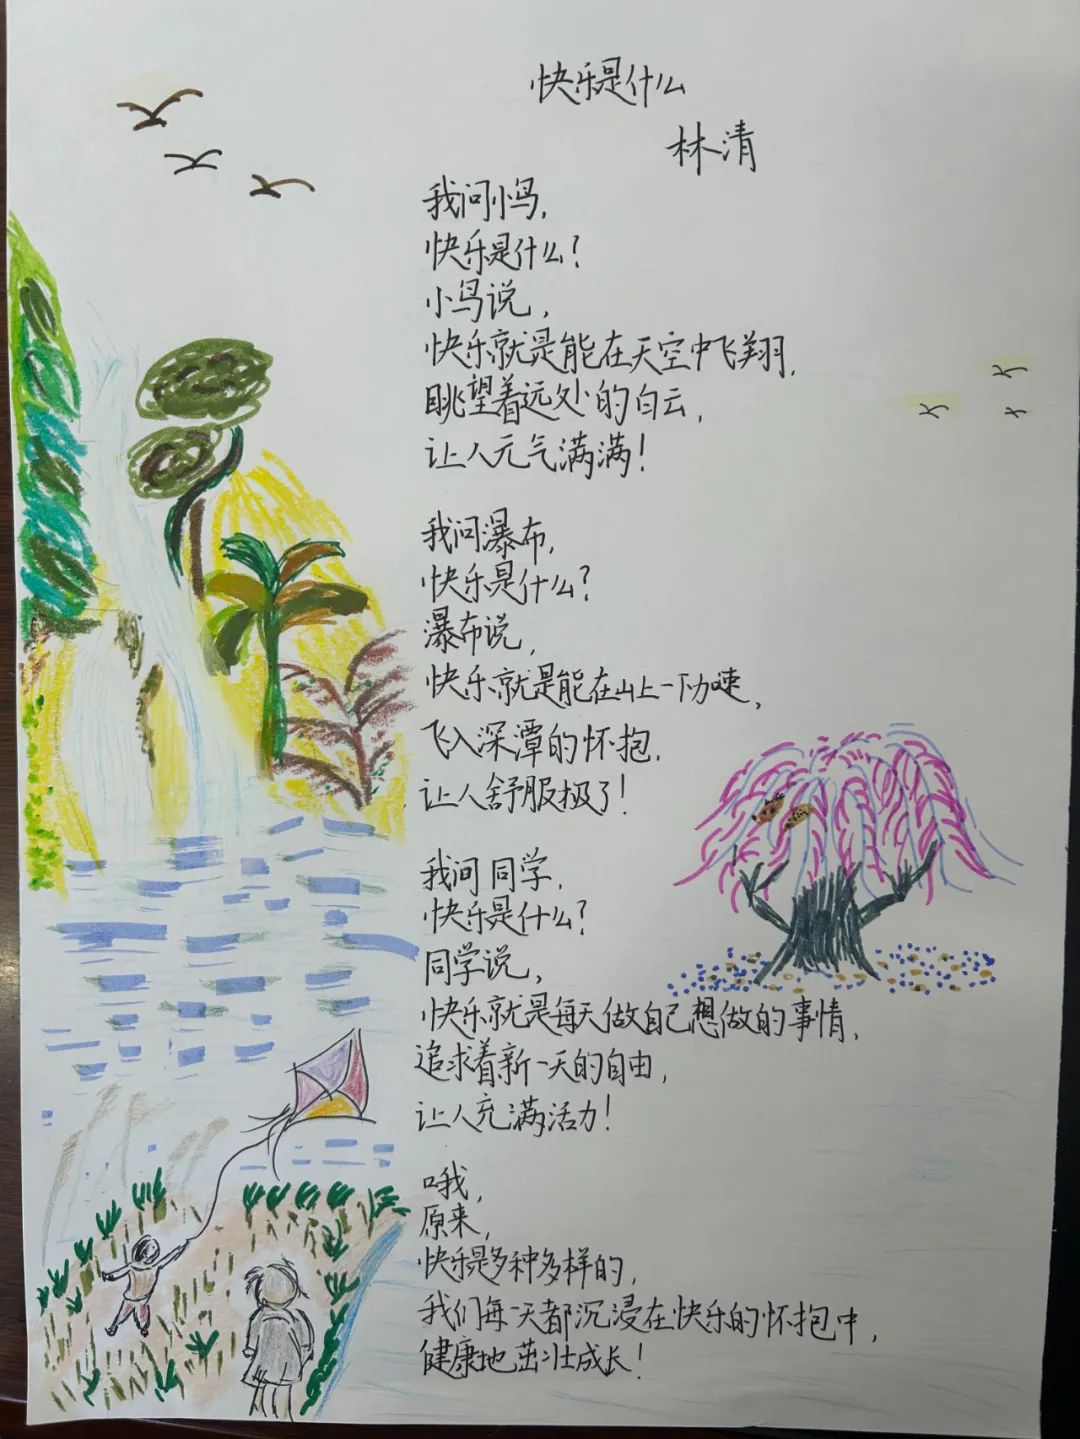 快乐是什么
林清
我问小鸟，
快乐是什么？
小鸟说，
快乐就是能在天空中飞翔，
眺望着远处的白云，
让人元气满满！
我问瀑布，
快乐是什么？
瀑布说，
快乐就是能在山上一下加速，
飞入深潭的怀抱，
让人舒服极了！
我问同学，
快乐是什么？
同学说，
快乐就是每天做自己想做的事情，
追求着新一天的自由，
让人充满活力！
哦，
原来，
快乐是多种多样的，
我们每天都沉浸在快乐的怀抱中，
健康地茁壮成长！